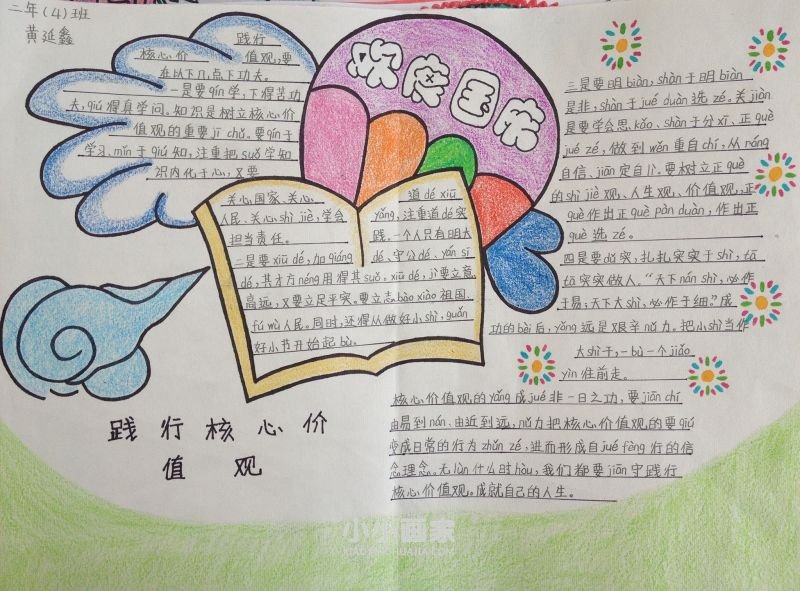 二年(4)班
黄延鑫
欢度国庆
践行
核心价 值观,要
在以下几点下功夫。
一是要qín学,下得苦功
夫,qiú得真学问。知识是树立核心价
值观的重要jī chǔ。要qín于
学习、mǐn于qiú知,注重把suǒ学知
识内化于心,又要
关心国家、关心
人民、关心shì jiè,学会
担当责任。
二是要xiū dé,加qiáng
道dé xiū
yǎng,注重道dé实
践。一个人只有明大
dé、守公dé、yán sī
dé,其才方néng用得其suǒ,xiū dé,jì要立意
高远,又要立足平实。要立志bào xiào祖国、
fú wù人民。同时,还得从做好小shì,guǎn
好小节开始起bù。
三是要明biàn,shàn于明biàn
是非,shàn于jué duàn选zé。关jiàn
是要学会思kǎo、shàn于分xī、正què
jué zé,做到wěn重自chí,从róng
自信、jiān定自lì。要树立正què
的shì jiè观、人生观、价值观,正
què作出正què pàn duàn,作出正
què选zé。
四是要dǔ实,扎扎实实于shì,tā
tā实实做人。“天下nán shì,必作
于易;天下大shì,必作于细。”成
功的bèi后,yǒng远是艰辛nǔ力。把小shì当作
大shì干,一bù一个jiǎo
yìn往前走。
核心价值观的yǎng成jué非一日之功,要jiān chí
由易到nán、由近到远,nǔ力把核心价值观的要qiú
变成日常的行为zhǔn zé,进而形成自jué fèng行的信
念理念。无lùn什么时hòu,我们都要jiān守践行
核心价值观。成就自己的人生。
践行核心价
值观
小小画家
XIAOXIAOHUAJIA.COM